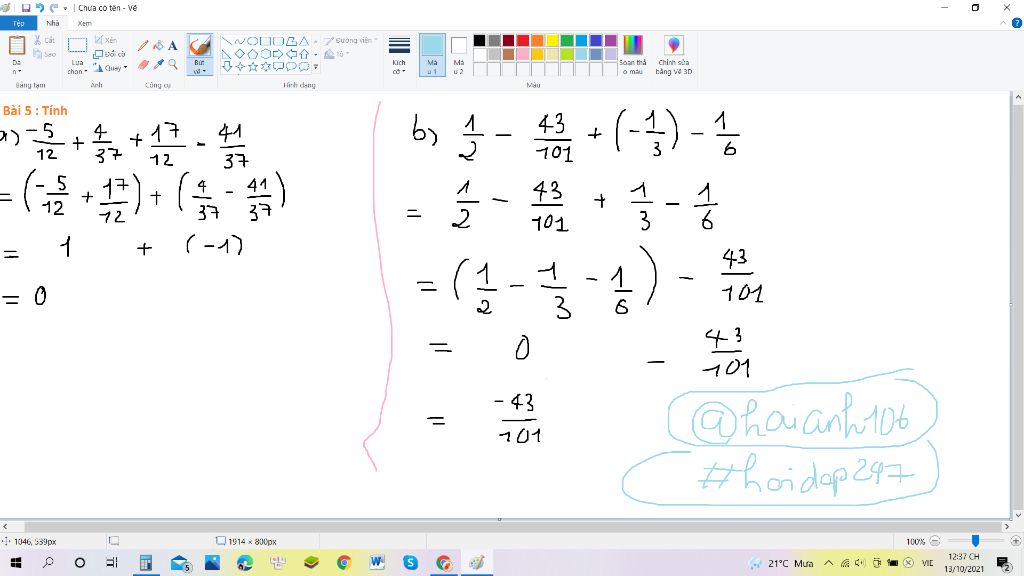 Chưa có tên - Vẽ
Tệp Nhà Xem
Dán
Cắt
Sao
Lựa chọn
Xén
Đổi cỡ
Quay
Bút vẽ
Đường viền
Tô
Kích cỡ
Màu 1
Màu 2
Soạn thảo màu
Chỉnh sửa bằng Vẽ 3D
Bảng tạm Ảnh Công cụ Hình dạng Màu
Bài 5 : Tính
a) -5/12 + 4/37 + 17/12 - 41/37
= (-5/12 + 17/12) + (4/37 - 41/37)
= 1 + (-1)
= 0
b) 1/2 - 43/101 + (-1/3) - 1/6
= 1/2 - 43/101 + 1/3 - 1/6
= (1/2 - 1/3 - 1/6) - 43/101
= 0 - 43/101
= -43/101
@hoianh106
#hoidap247
1046, 539px
1914 × 800px
100%
5
W
S
21°C Mưa
VIE
12:37 CH
13/10/2021
2